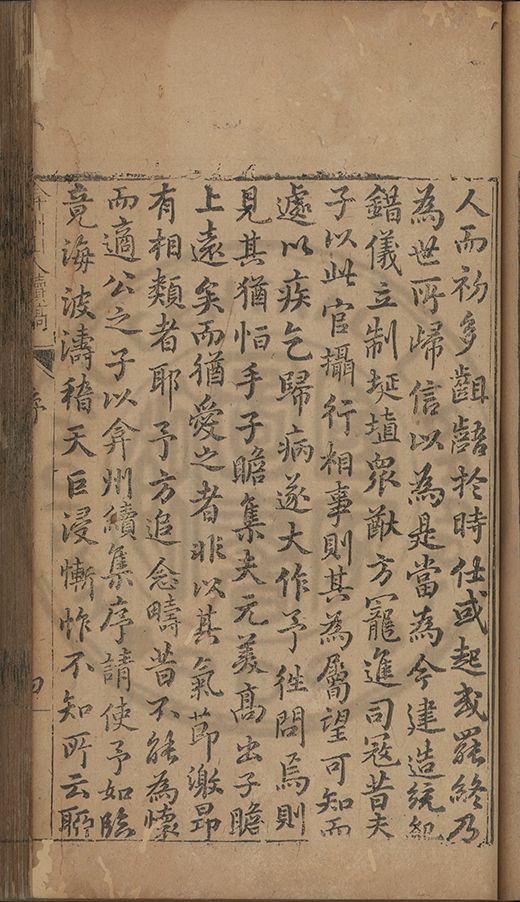 人而初多齟齬於時仕或起或罷終乃
為世所歸信以為是當為今建造統紀
錯儀立制埏埴眾猷方寵進司寇昔夫
子以此官攝行相事則其為屬望可知而
遽以疾乞歸病遂大作予往問焉則
見其猶怕手子瞻集夫元美高出子瞻
上遠矣而猶愛之者非以其氣節激昂
有相類者耶予方追念疇昔不能為懷
而適公之子以弇州續集序請使予如臨
竟海波濤稽天巨浸慚怍不知所云聊
弇州 續稿
序
四